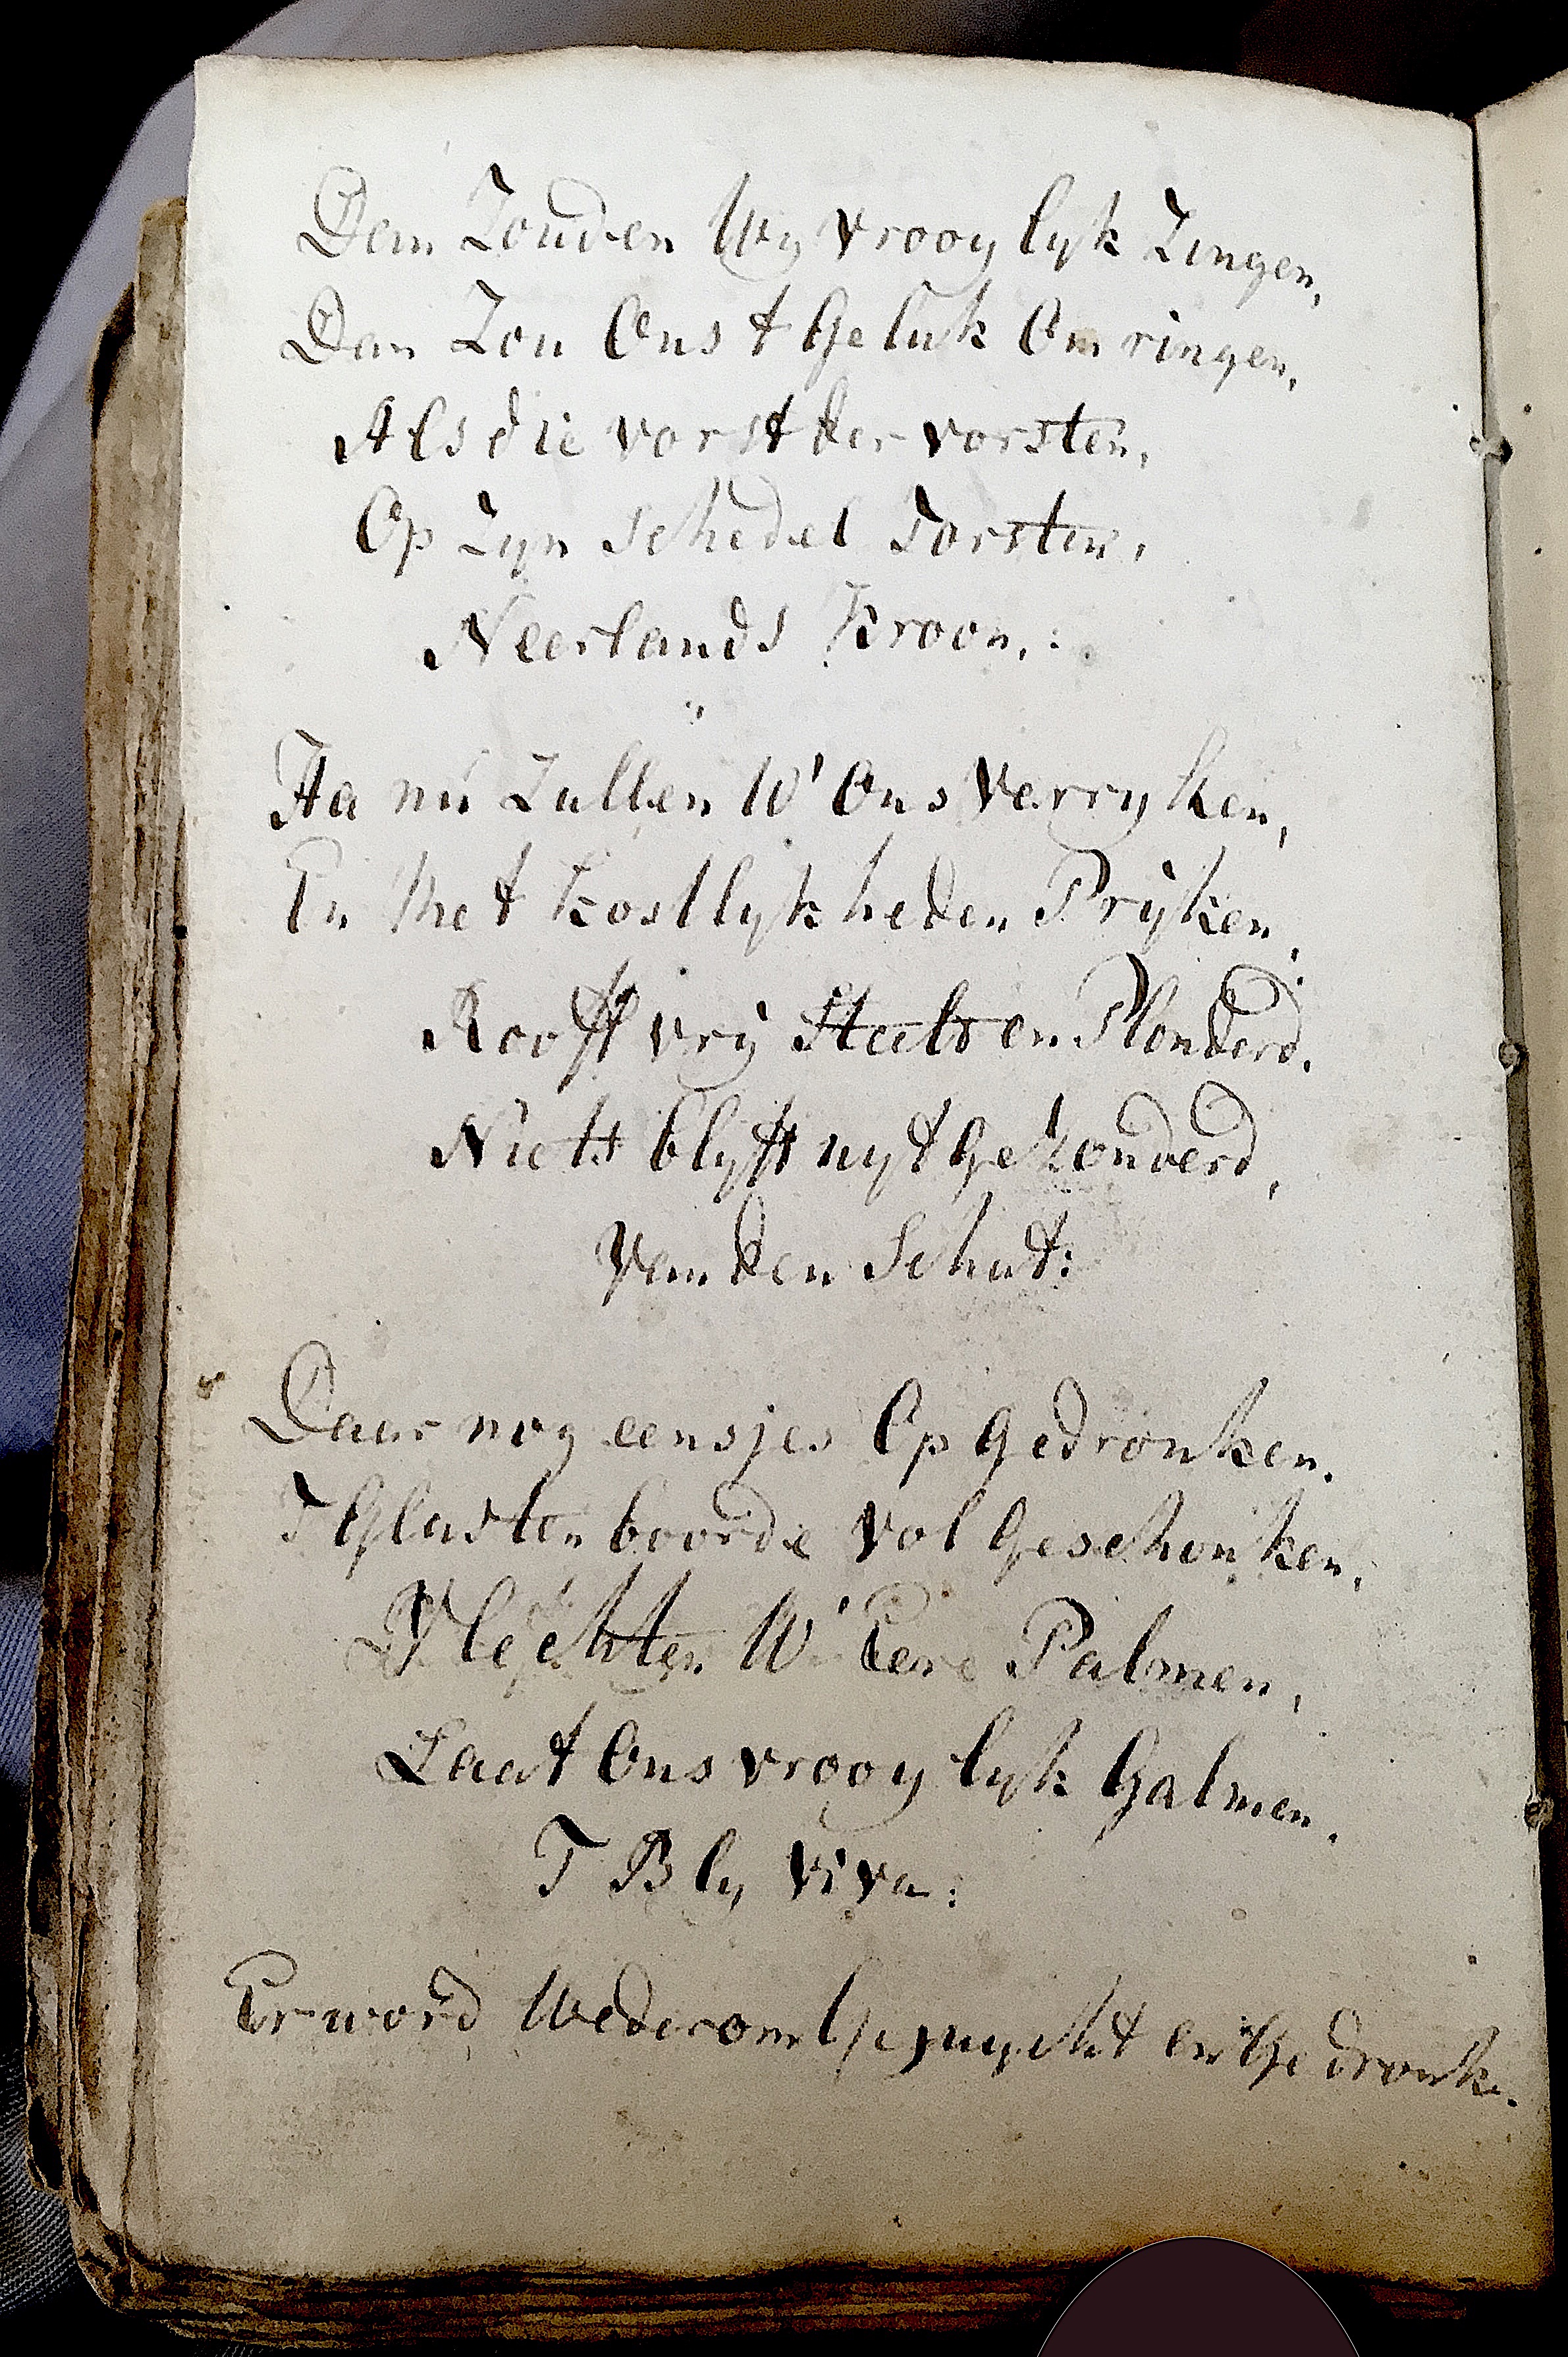 Dan Zouden Wy vrooylyk Zingen,
Dan Zou Ons t Geluk Omringen,
Als die vorst der vorsten,
Op Zyn schedel Torsten,
Neerlands Kroon,:
Ja nu Zullen W' Ons Verryken,
En Met Kostlykheden Pryken,
Rooft vry Steelt en Plonderd.
Niets blyft uytgezonderd,
Van den Schat:
Daar nog eensjes Op gedronken.
T Glas ten boorde vol geschonken,
Vlechten W' Eere Palmen,
Laat Ons vrooylyk Galmen.
T Bly viva:
Er word Wederom Gejuycht en Gedronke.